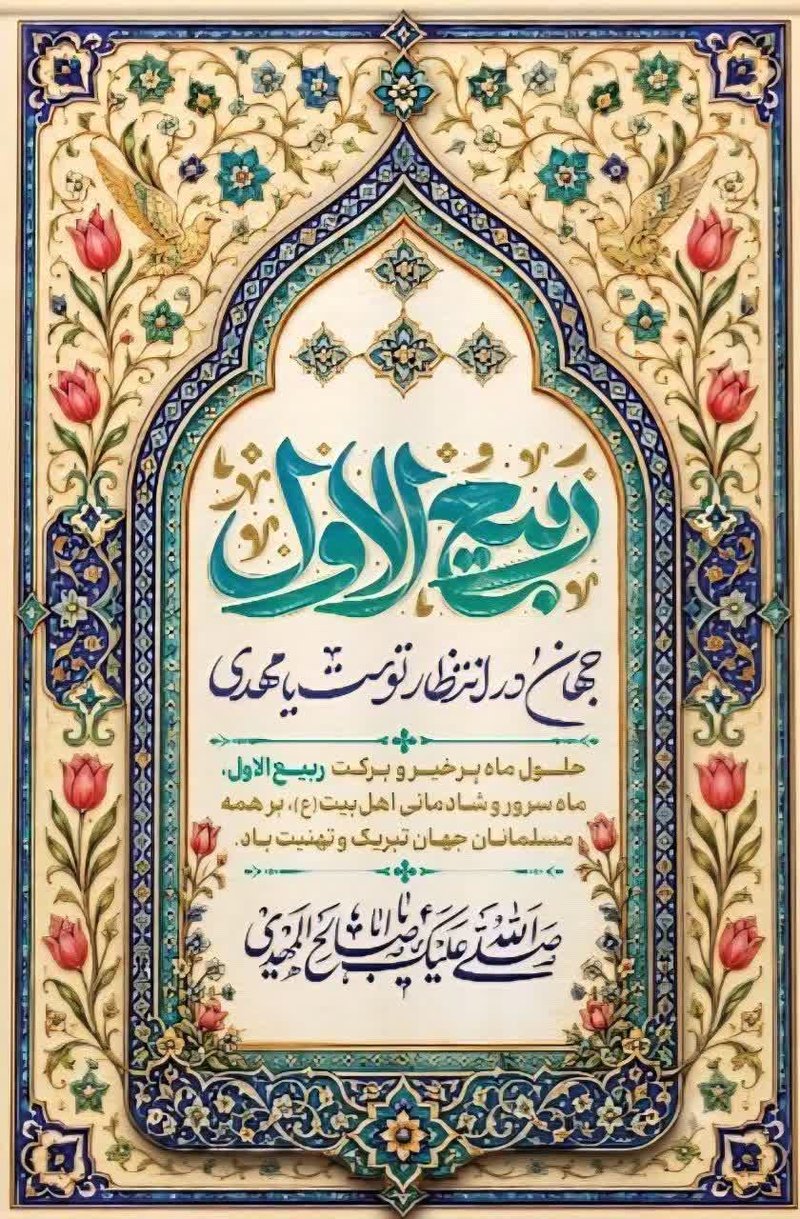 ربیع الاول
جهان در انتظار توست یا مهدی
حلول ماه پر خیر و برکت ربیع الاول،
ماه سرور و شادمانی اهل بیت(ع)، بر همه
مسلمانان جهان تبریک و تهنیت باد.
صلی الله علیک یا اباصالح المهدی